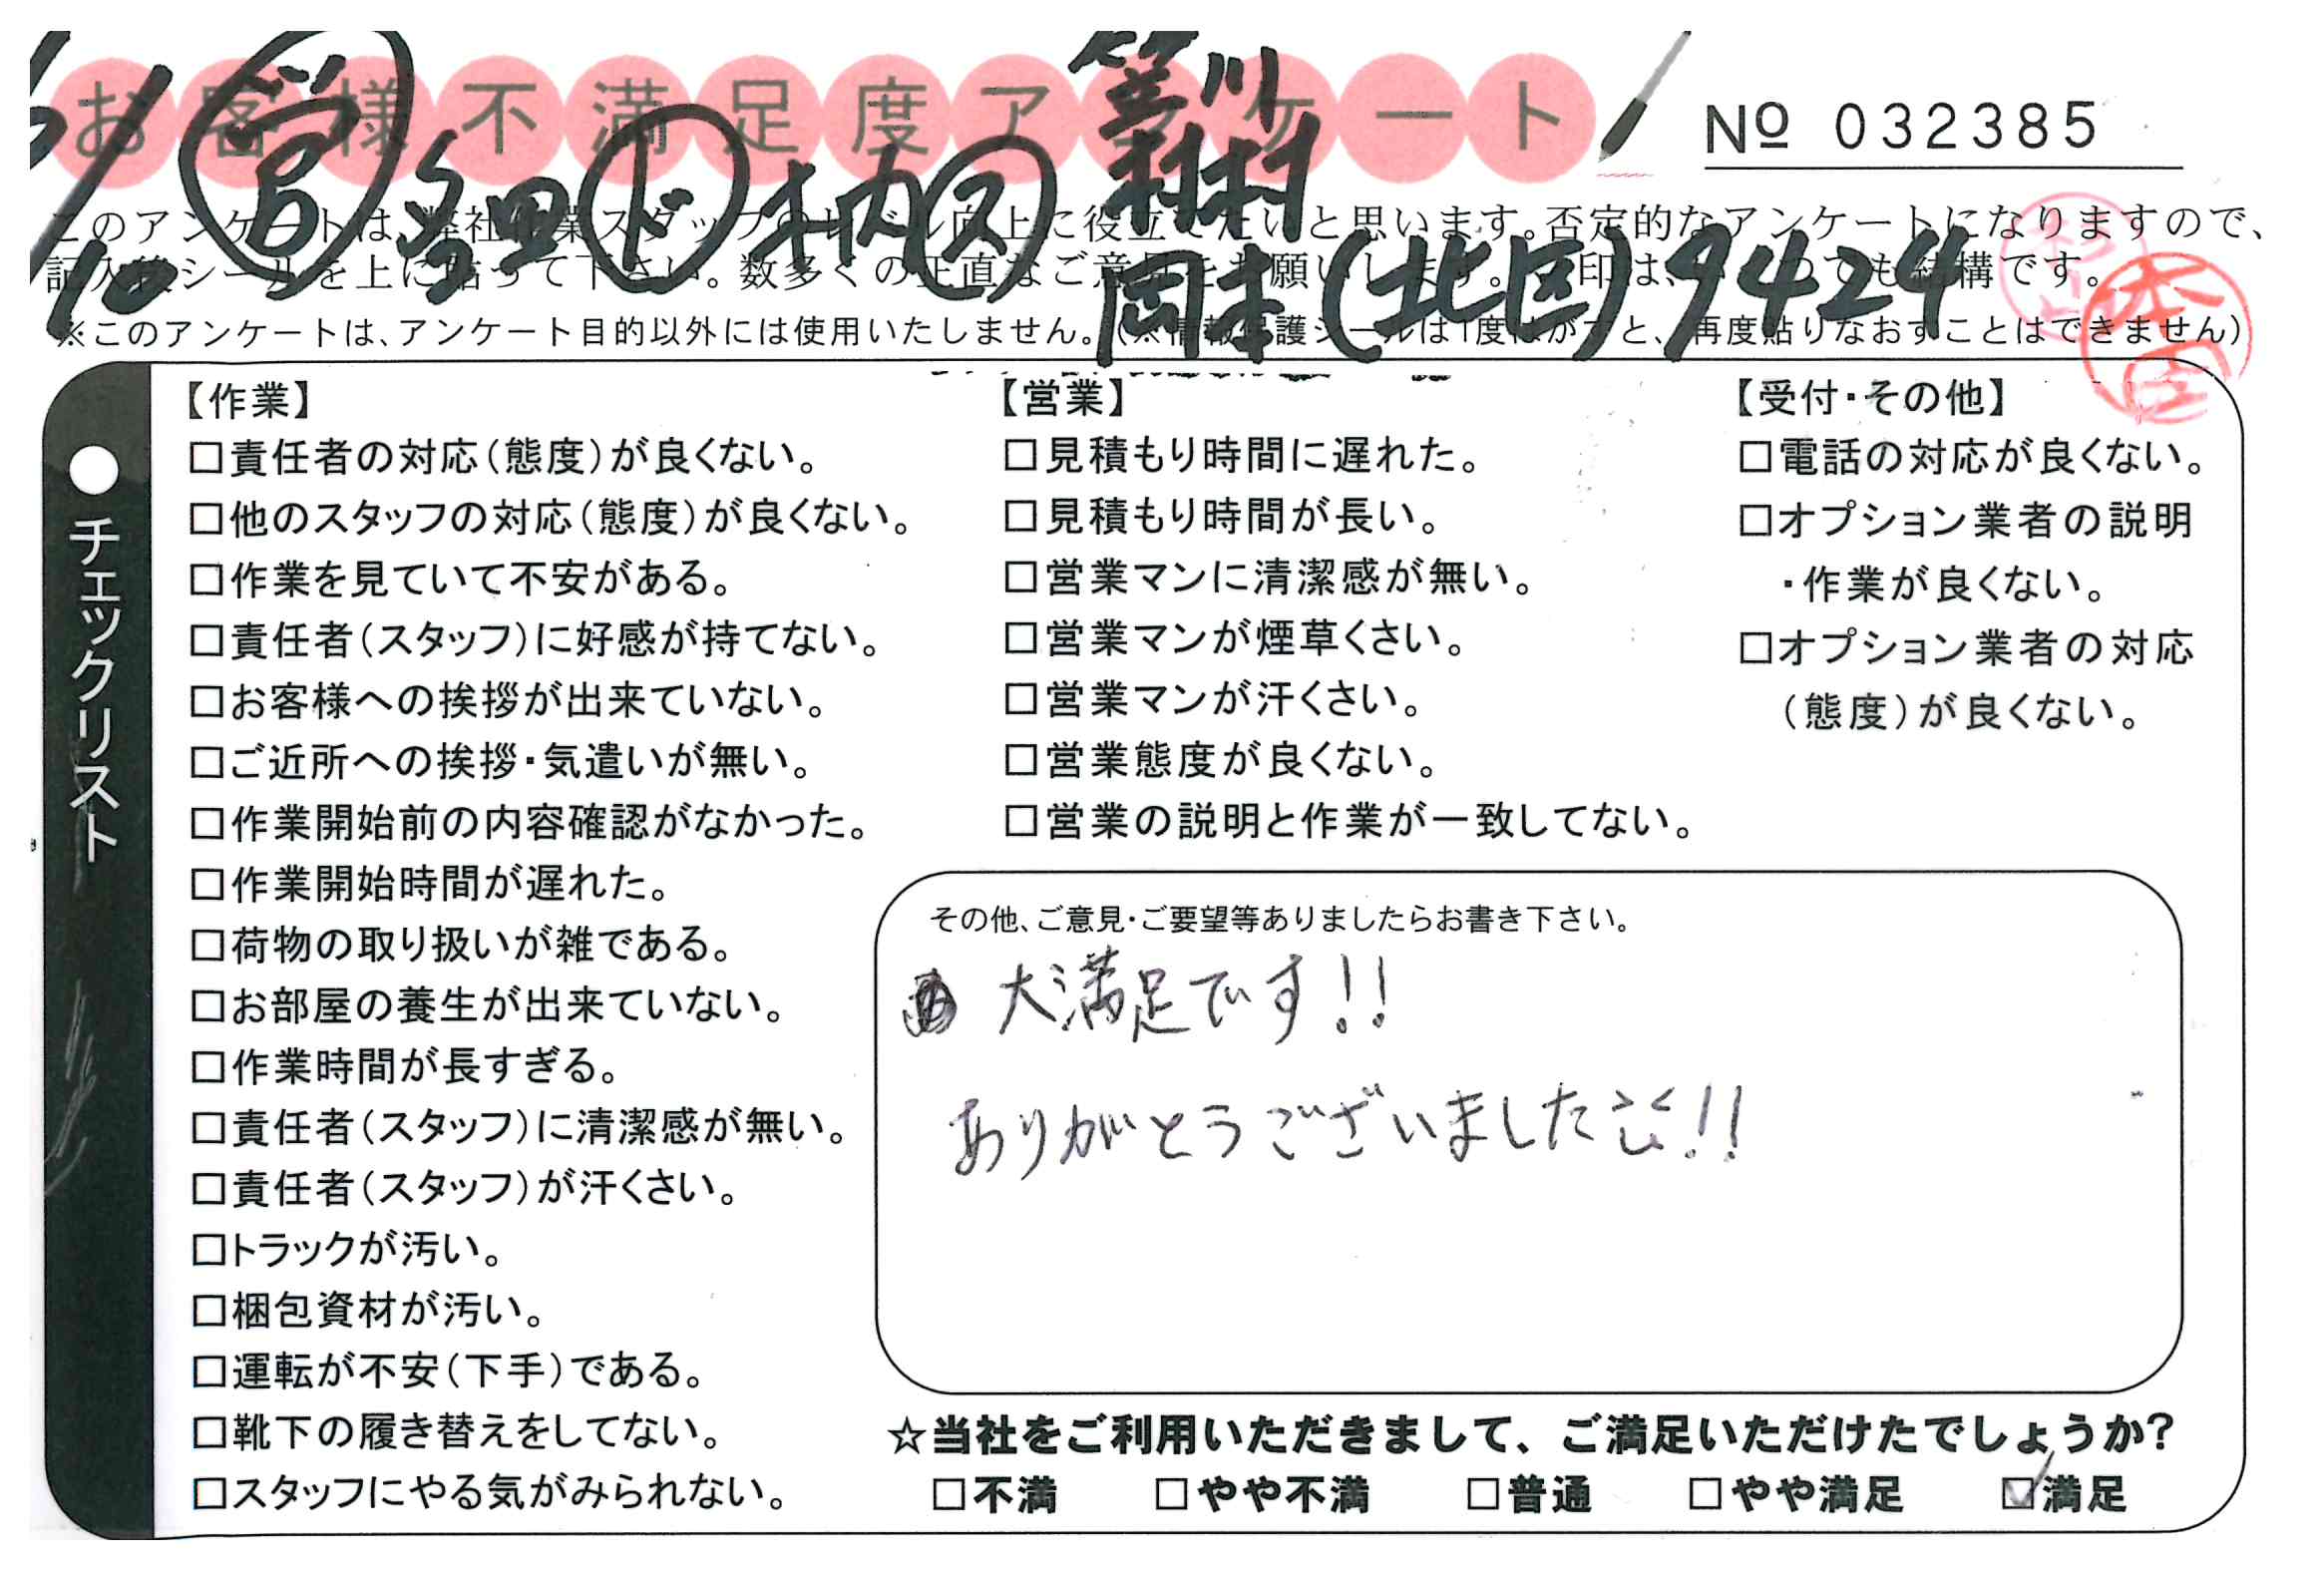 お客様不満足度アンケート
No 032385
6/10 塩田 ド 柄内 ス 笹川 木村 岡本(北区)9424
このアンケートは、弊社作業スタッフのレベル向上に役立てたいと思います。否定的なアンケートになりますので、
記入後シールを上に貼って下さい。数多くの正直なご意見をお願いします。 印は、 ても結構です。
※このアンケートは、アンケート目的以外には使用いたしません。(※情報保護シールは1度はがすと、再度貼りなおすことはできません)
●チェックリスト
【作業】
□責任者の対応(態度)が良くない。
□他のスタッフの対応(態度)が良くない。
□作業を見ていて不安がある。
□責任者(スタッフ)に好感が持てない。
□お客様への挨拶が出来ていない。
□ご近所への挨拶・気遣いが無い。
□作業開始前の内容確認がなかった。
□作業開始時間が遅れた。
□荷物の取り扱いが雑である。
□お部屋の養生が出来ていない。
□作業時間が長すぎる。
□責任者(スタッフ)に清潔感が無い。
□責任者(スタッフ)が汗くさい。
□トラックが汚い。
□梱包資材が汚い。
□運転が不安(下手)である。
□靴下の履き替えをしてない。
□スタッフにやる気がみられない。
【営業】
□見積もり時間に遅れた。
□見積もり時間が長い。
□営業マンに清潔感が無い。
□営業マンが煙草くさい。
□営業マンが汗くさい。
□営業態度が良くない。
□営業の説明と作業が一致してない。
【受付・その他】
□電話の対応が良くない。
□オプション業者の説明
・作業が良くない。
□オプション業者の対応
(態度)が良くない。
その他、ご意見・ご要望等ありましたらお書き下さい。
大満足です!!
ありがとうございました!!
☆当社をご利用いただきまして、ご満足いただけたでしょうか?
□不満 □やや不満 □普通 □やや満足 ☑満足